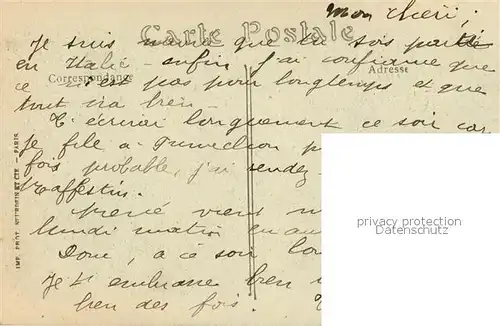 Mon Chéri,
Carte Postale
Je suis navré que tu sois parti
en Italie - enfin j'ai confiance que
Correspondance
Adresse
ce n'est pas pour longtemps et que
tout ira bien -
T'écrirai longuement ce soir car
je file à
fois probable, j'ai rendez-
Raffestin.
René vient
lundi matin en au
Donc, à ce soir lon
Je t'embrasse bien
bien des fois.
IMP. PHOT. NEURDEIN ET CIE - PARIS
privacy protection
Datenschutz